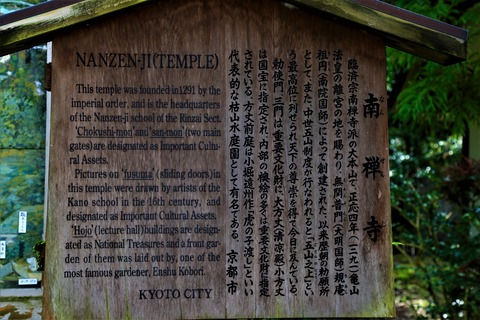 NANZEN-JI(TEMPLE)
This temple was founded in 1291 by the
imperial order, and is the headquarters
of the Nanzen-ji school of the Rinzai Sect.
'Chokushi-mon' and 'san-mon' (two main
gates) are designated as Important Cultu-
ral Assets.
Pictures on 'fusuma' (sliding doors) in
this temple were drawn by artists of the
Kano school in the 16th century, and
designated as Important Cultural Assets.
'Hojo' (lecture hall) buildings are desig-
ated as National Treasures and a front gar-
den of them was laid out by, one of the
most famous gardener, Enshu Kobori.
KYOTO CITY
南禅寺
なん ぜん じ
臨済宗南禅寺派の大本山で、正応四年(一二九一)亀山
法皇の離宮の地を賜わり、無関普門(大明国師)
祖円(南院国師)によって創建された。以来歴朝の勅願所
として、また、中世五山制度が行なわれると「五山之上」とい
う最高位に列せられ天下の尊崇を得て今日に及んでいる。
勅使門、三門は重要文化財に、大方丈(清凉殿)小方丈
は国宝に指定され、内部の襖絵の多くは重要文化財に指定
されている。方丈前庭は小堀遠州作「虎の子渡し」といい
代表的な枯山水庭園として有名である。
京都市